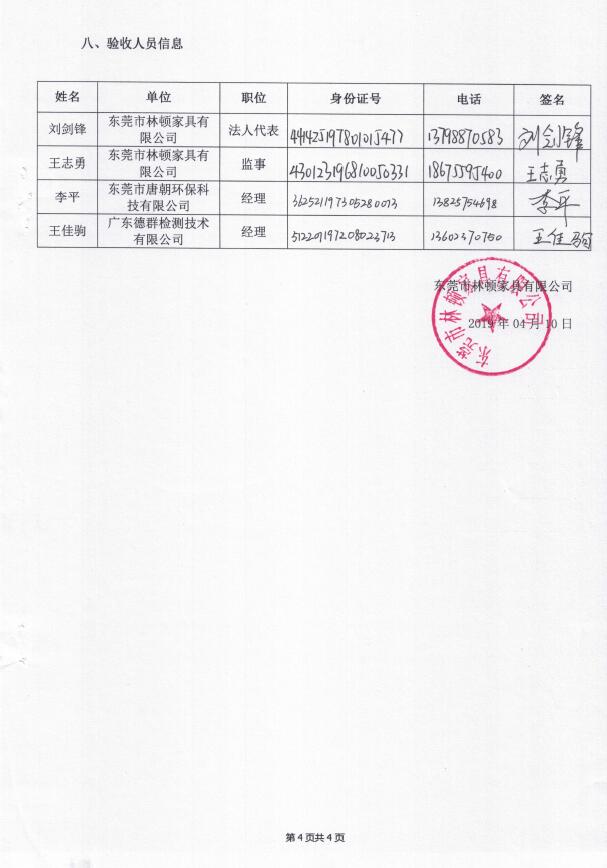 八、验收人员信息
姓名 单位 职位 身份证号 电话 签名
刘剑锋 东莞市林顿家具有限公司 法人代表 441425197801015477 13798870583 刘剑锋
王志勇 东莞市林顿家具有限公司 监事 430123196810050331 18675595400 王志勇
李平 东莞市唐朝环保科技有限公司 经理 362521197305280073 13825754698 李平
王佳驹 广东德群检测技术有限公司 经理 13602370750 王佳驹
东莞市林顿家具有限公司
2019年04月10日
东莞市林顿家具有限公司
第4页共4页